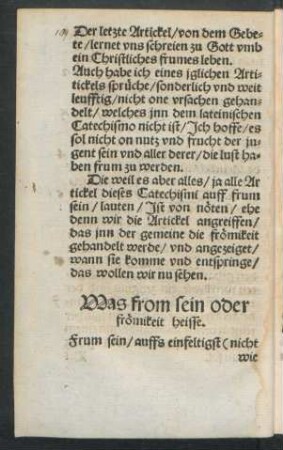 Der letzte Artickel/von dem Gebe-
te/lernet vns schreien zu Gott vmb
ein Christliches frumes leben.
Auch habe ich eines jglichen Arti-
tickels sprüche/sonderlich vnd weit
leufftig/nicht one vrsachen gehan-
delt/welches jnn dem lateinischen
Catechismo nicht ist/Ich hoffe/es
sol nicht on nutz vnd frucht der ju-
gent sein vnd aller derer/die lust ha-
ben frum zu werden.
Die weil es aber alles/ja alle Ar
tickel dieses Catechismi auff frum
sein/lauten/Ist von nöten/ehe
denn wir die Artickel angreiffen/
das jnn der gemeine die frömikeit
gehandelt werde/vnd angezeiget/
wann sie komme vnd entspringe/
das wollen wir nu sehen.
Was from sein oder
frömikeit heisse.
Frum sein/auffs einfeltigst (nicht
wie